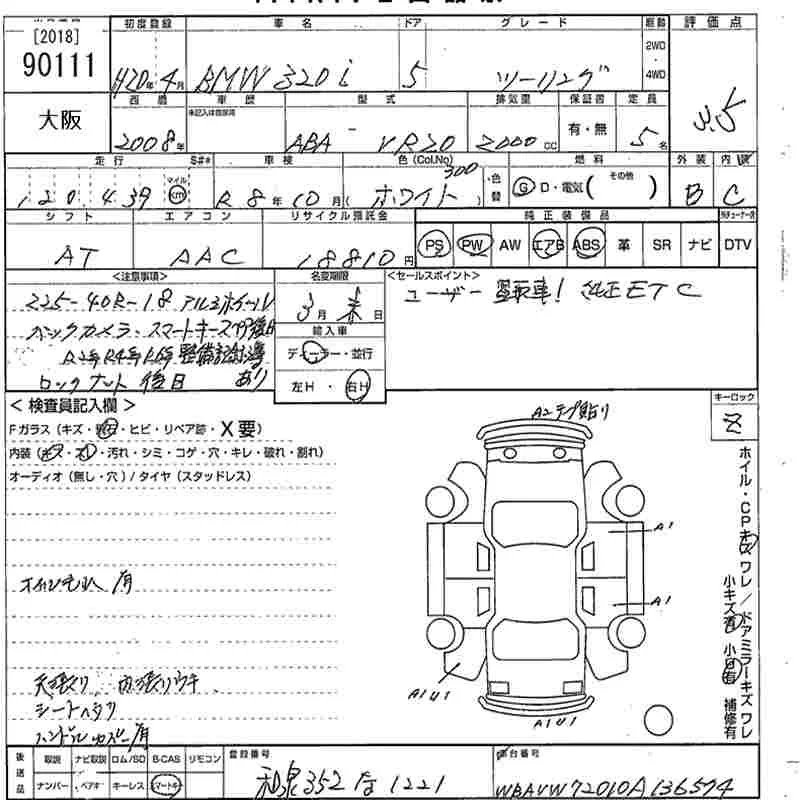 [2018]
90111
大阪
初度登録 車名 ドア グレード 駆動 評価点
H20年 4月 BMW 320i 5 ツーリング 2WD・4WD
3.5
西暦 車歴 型式 排気量 保証書 定員
未記入は自家用
2008年 ABA - VR20 2000CC 有・無 5名
走行 S#* 車検 色(Col.No) 燃料 外装 内装
120,439 マイル km R8年10月 ( ホワイト 300 ) 色替 G D・電気( その他 ) B C
シフト エアコン リサイクル預託金 純正装備品
AT AAC 18810円 PS PW AW エアB ABS 革 SR ナビ DTV
<注意事項>
225-40R-18 アルミホイール
バックカメラ・スマートキースペア後日
R2年R4年R6年整備記録簿
ロックナット後日 あり
名変期限
3月末日
輸入車
ディーラー・並行
左H・右H
<セールスポイント>
ユーザー買取車! 純正ETC
<検査員記入欄>
Fガラス(キズ・・ヒビ・リペア跡・X要)
内装(・・汚れ・シミ・コゲ・穴・キレ・破れ・割れ)
オーディオ(無し・穴)/タイヤ(スタッドレス)
オイルもれ 有
天張り 内張りウキ
シートヘタリ
ハンドルカバー有
A2テプ貼り
A1
A1
A1U1
A1U1
キーロック
Z
ホイル・CPキズ ワレ/ドアミラーキズ ワレ
小キズ有 小凹有 補修有
後送品 取説 ナビ取説 ロム/SD B-CAS リモコン
ナンバー ベアキー キーレス スマートキー
登録番号
和泉352な1221
車台番号
WBAVW72010A136574